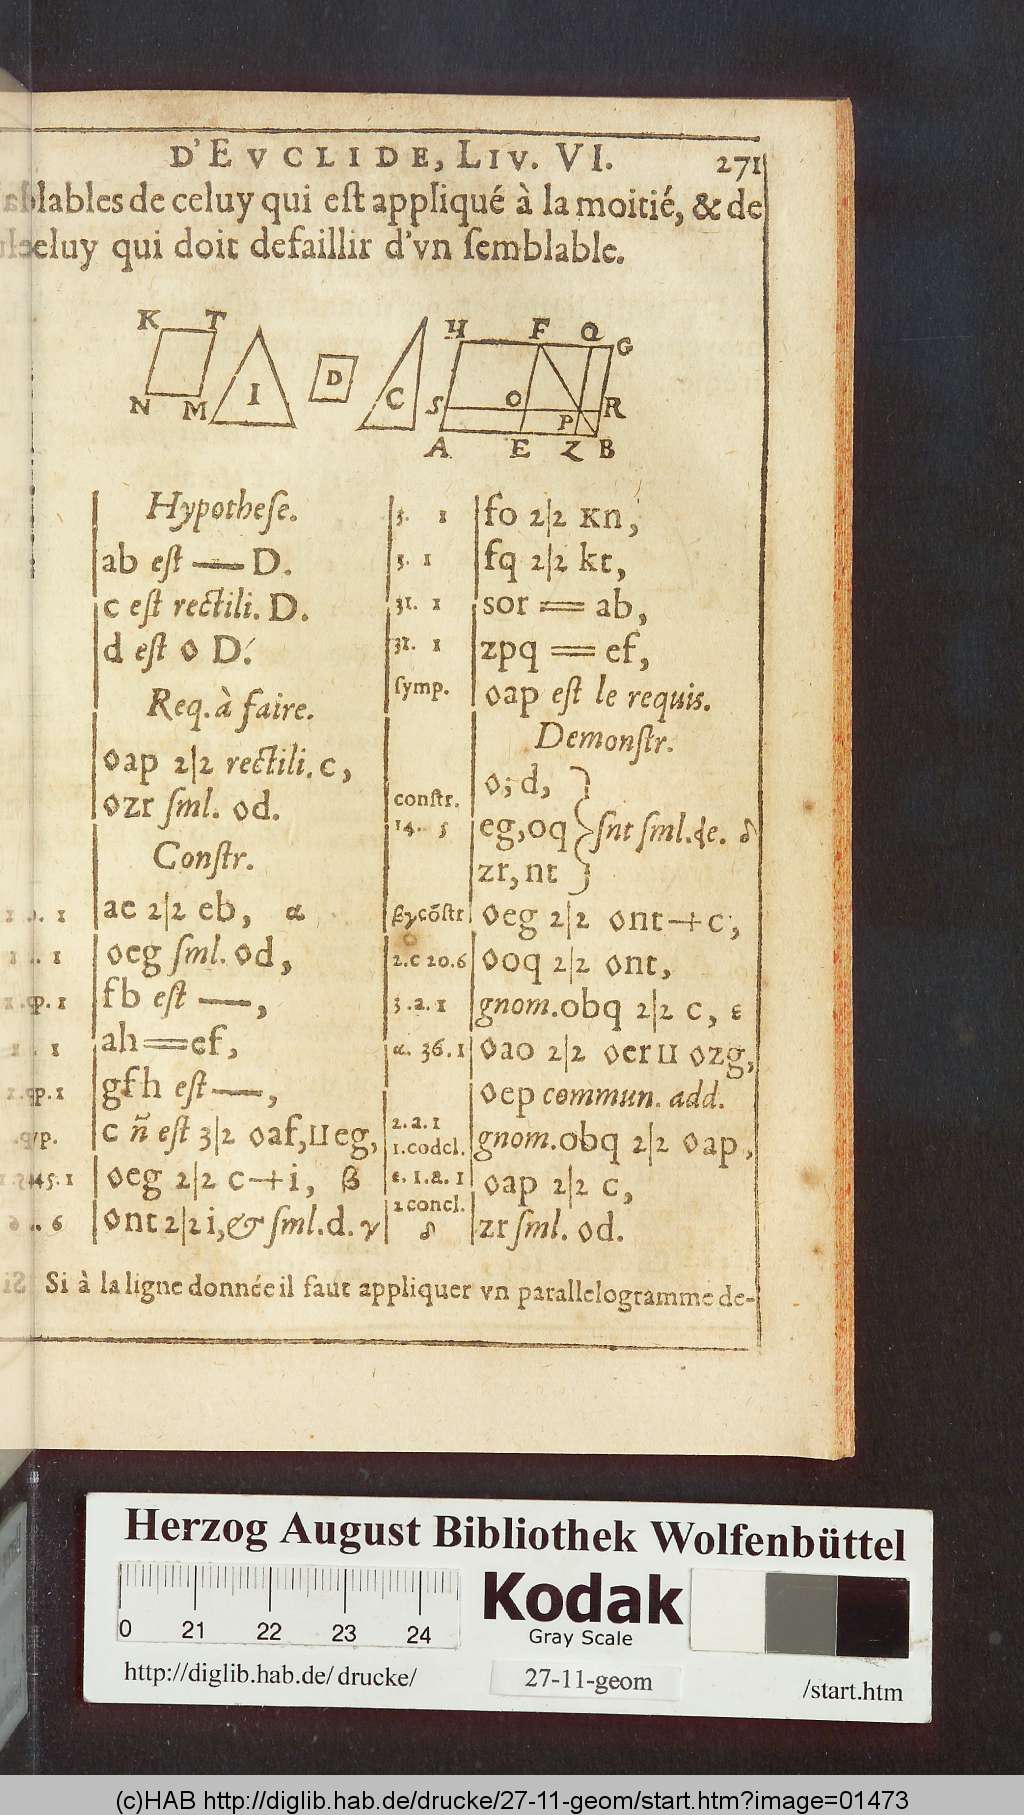 D'EVCLIDE, LIV. VI. 271
blables de celuy qui est appliqué à la moitié, & de
celuy qui doit defaillir d'vn semblable.
K T H F Q G
I D C S O P R
N M A E Z B
Hypothese.
ab est — D.
c est rectili. D.
d est ◊ D.
Req. à faire.
◊ap 2|2 rectili. c,
◊zr sml. ◊d.
Constr.
ae 2|2 eb, α
◊eg sml. ◊d,
fb est —,
ah == ef,
gfh est —,
c ñ est 3|2 ◊af, ⊔ eg,
◊eg 2|2 c + i, β
◊nt 2|2 i, & sml. d. γ
3. 1 fo 2|2 kn,
3. 1 fq 2|2 kt,
31. 1 sor == ab,
31. 1 zpq == ef,
symp. ◊ap est le requis.
Demonstr.
◊; d,
constr.
14. 5 eg, oq } snt sml. de. δ
zr, nt
βγ cõstr ◊eg 2|2 ◊nt + c,
2. c 20. 6 ◊oq 2|2 ◊nt,
3. a. 1 gnom. obq 2|2 c, ε
α. 36. 1 ◊ao 2|2 ◊er ⊔ ◊zg,
◊ep commun. add.
2. a. 1
1. codcl. gnom. obq 2|2 ◊ap,
ε. 1. a. 1 ◊ap 2|2 c,
2 concl.
δ zr sml. ◊d.
Si à la ligne donnée il faut appliquer vn parallelogramme de-
Herzog August Bibliothek Wolfenbüttel
0 21 22 23 24
Kodak
Gray Scale
http://diglib.hab.de/drucke/ 27-11-geom /start.htm
(c)HAB http://diglib.hab.de/drucke/27-11-geom/start.htm?image=01473